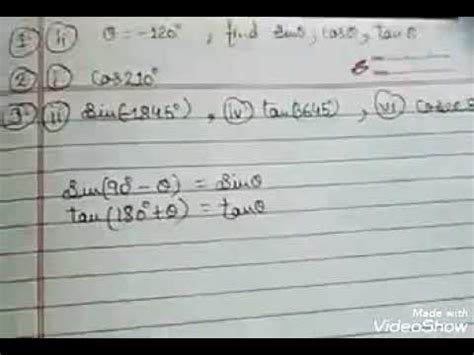 1 ii θ = -120° , find sinθ, cosθ, tanθ
2 i cos210°
3 ii sin(-1845°) , iv tan(3645°) , vi cosec
sin(90 - θ) = sinθ
tan(180° + θ) = tanθ
Made with
VideoShow